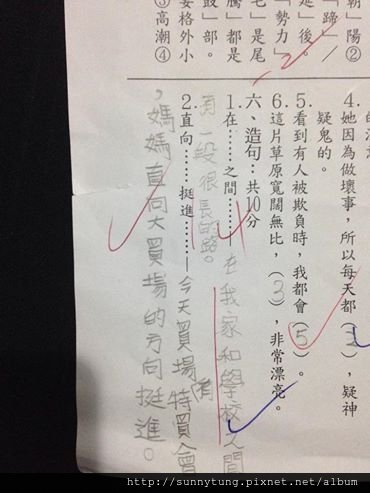 的
4.她因為做壞事，所以每天都（2），疑神
疑鬼的。
5.看到有人被欺負時，我都會（5）。
6.這片草原寬闊無比，（3），非常漂亮。
六、造句：共10分
1.在……之間……在我家和學校之間
有一段很長的路。
2.直向……挺進……—今天買場有特買會
，媽媽直向大買場的方向挺進。
朝」陽②
「蹄」／
延」後。
「勢力」
毛」是尾
騰」都是
鼓」部。
姿格外小
③高潮④
-2
http://sunnytung.pixnet.net/album